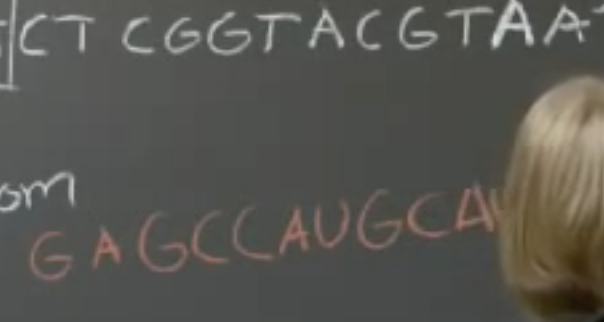 CT CGGTACGTAA
om
GAGCCAUGCA